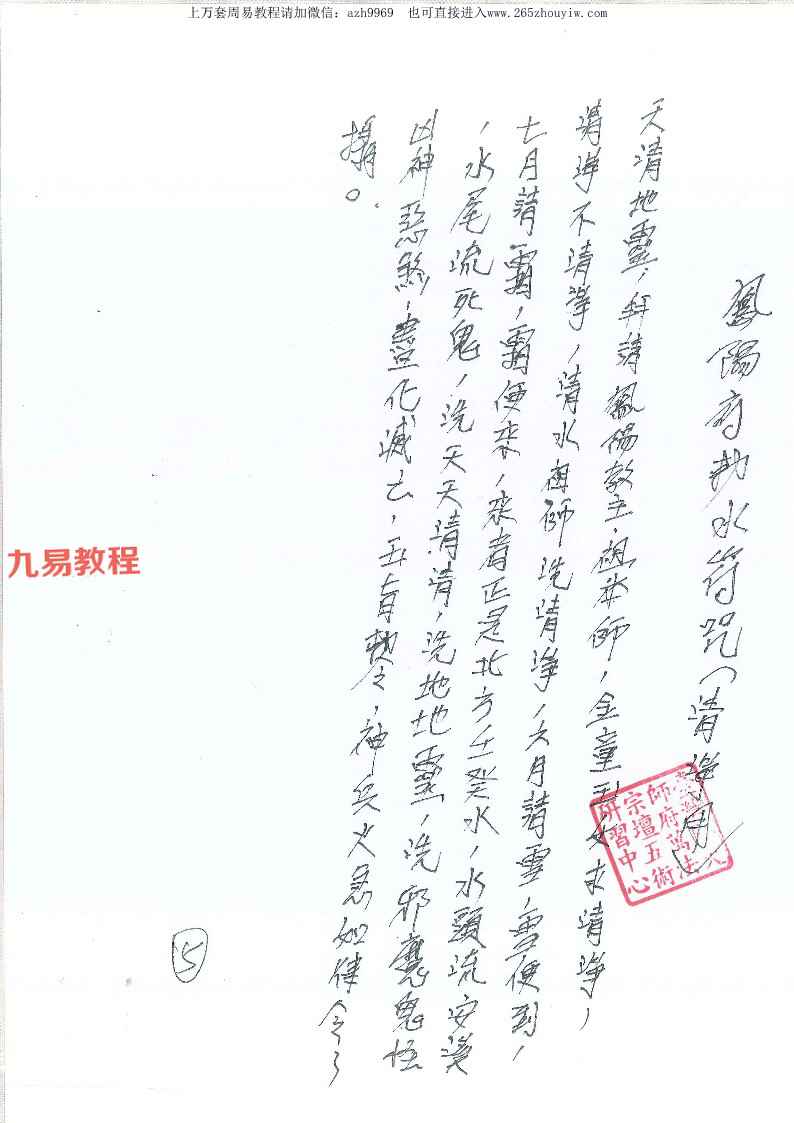 上万套周易教程请加微信：azh9969　也可直接进入www.265zhouyiw.com
鳳陽府勅水符咒（清淨用）
天清地靈，拜請鳳陽教主，祖本師，金童玉女求清淨，
清淨不清淨，清水祖師洗清淨，六月請雪，雪便到，
七月請霜，霜便來，來者正是北方壬癸水，水頭流安溪
，水尾流死鬼，洗天天清清，洗地地靈靈，洗邪魔鬼怪
凶神惡煞，盡化滅亡，五 勅令，神兵火急如律令
攝。
九易教程
師府萬法
宗壇五術
研習中心
15